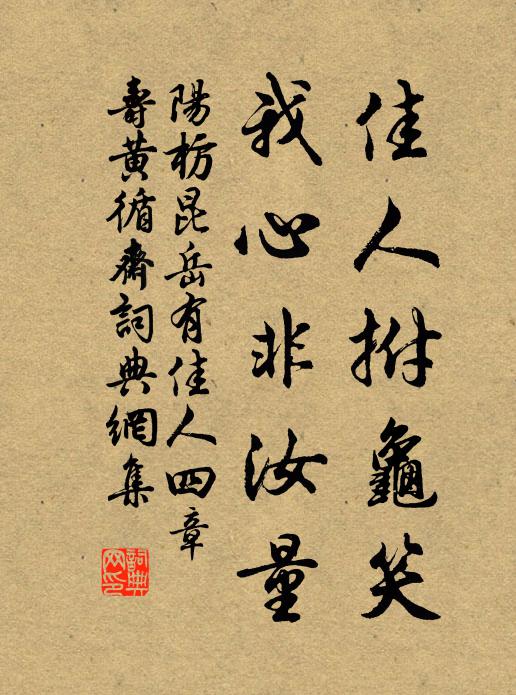 佳人拊龜笑
我心非汝量
陽枋昆岳有佳人四章
壽黃循齋詞典網集
詞典网印